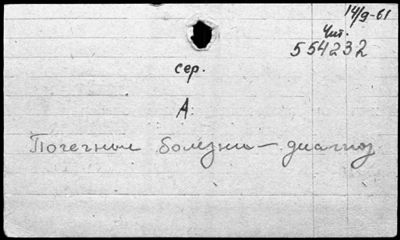 14/9-61
Чит.
554232
сер.
А.
Почечные болезни — диагноз